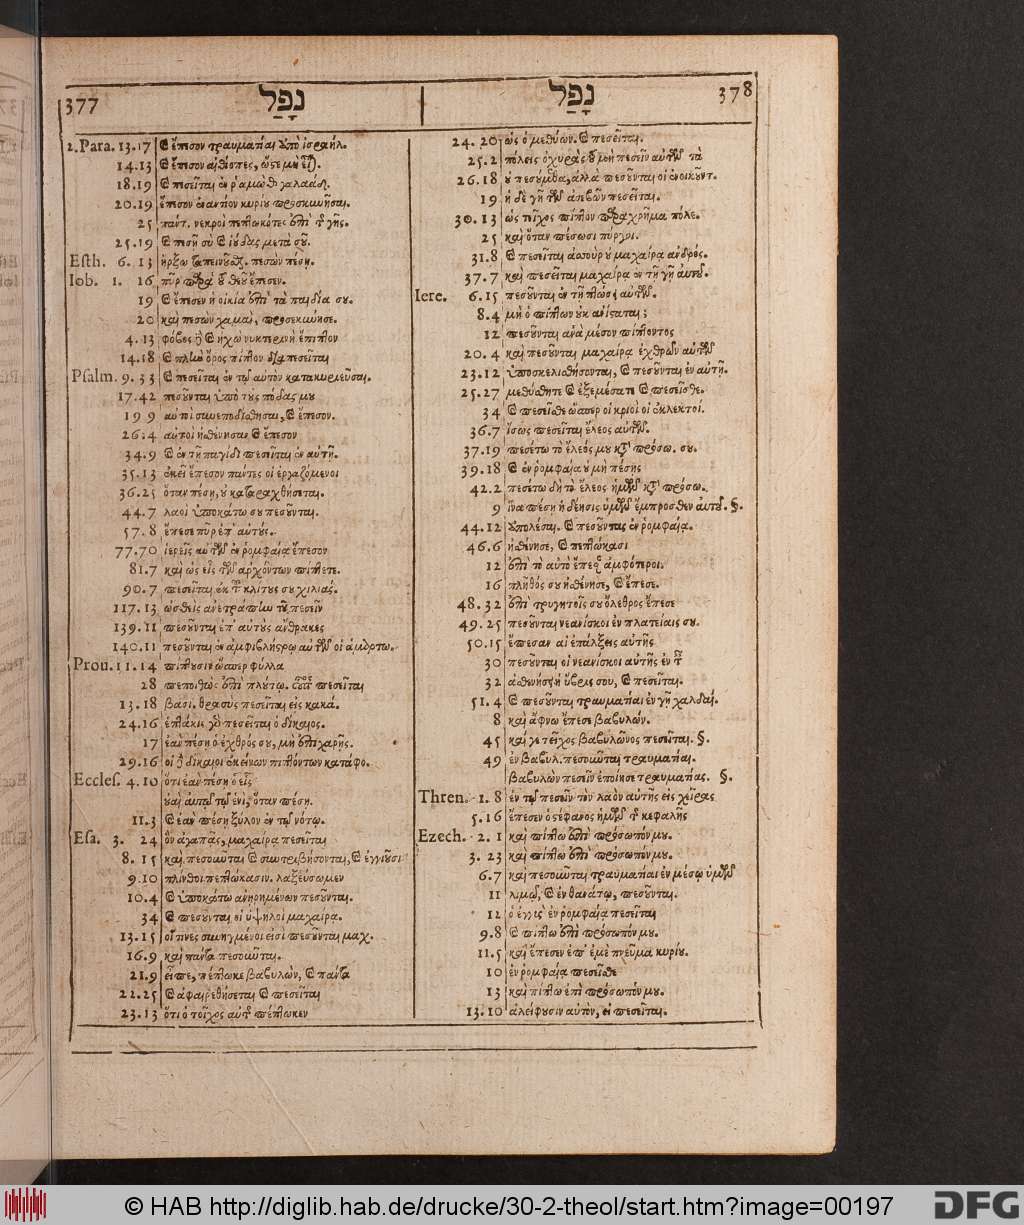 377 נָפַל
נָפַל 378
2. Para. 13.17 & ἔπεσον τραυματίαι ὑπὸ ἰσραήλ.
14.13 & ἔπεσον αἰθίοπες, ὥστε μὴ εἶναι.
18.19 & πεσεῖται ἐν ῥαμὼθ γαλαάδ.
20.19 ἔπεσον ἐναντίον κυρίου προσκυνῆσαι.
25 πάντ. νεκροὶ πεπτωκότες ἐπὶ τ γῆς.
25.19 & πεσῇ σὺ & ἰούδας μετὰ σοῦ.
Esth. 6.13 ἤρξω ταπεινοῦσθ. πεσὼν πέσῃ.
Iob. 1. 16 πῦρ παρὰ τοῦ θεοῦ ἔπεσεν.
19 & ἔπεσεν ἡ οἰκία ἐπὶ τὰ παιδία σου.
20 καὶ πεσὼν χαμαὶ, προσεκύνησε.
4.13 φόβος δὲ & ἠχὼ νυκτερινὴ ἐπίπτον
14.18 & πλὴν ὄρος πίπτον διαπεσεῖται
Psalm. 9.33 & πεσεῖται ἐν τῷ αὐτὸν κατακυριεῦσαι.
17.42 πεσοῦνται ὑπὸ τοὺς πόδας μου
19 9 αὐτοὶ συνεποδίσθησαν, & ἔπεσον.
26.4 αὐτοὶ ἠσθένησαν & ἔπεσον
34.9 & ἐν τῇ παγίδι πεσεῖται ἐν αὐτῇ.
35.13 ἐκεῖ ἔπεσον πάντες οἱ ἐργαζόμενοι
36.25 ὅταν πέσῃ, οὐ καταραχθήσεται.
44.7 λαοὶ ὑποκάτω σου πεσοῦνται.
57.8 ἔπεσε πῦρ ἐπ' αὐτούς.
77.70 ἱερεῖς αὐτῶν ἐν ῥομφαίᾳ ἔπεσον
81.7 καὶ ὡς εἷς τῶν ἀρχόντων πίπτετε.
90.7 πεσεῖται ἐκ τ κλίτους σου χιλιάς.
117.13 ὠσθεὶς ἀνετράπην τοῦ πεσεῖν
139.11 πεσοῦνται ἐπ' αὐτοὺς ἄνθρακες
140.11 πεσοῦνται ἐν ἀμφιβλήστρῳ αὐτῶν οἱ ἁμαρτω.
Prou. 11.14 πίπτουσιν ὥσπερ φύλλα
28 πεποιθὼς ἐπὶ πλούτῳ. οὗτος πεσεῖται
13.18 βασι. θρασὺς πεσεῖται εἰς κακά.
24.16 ἑπτάκις γὸ πεσεῖται ὁ δίκαιος.
17 ἐὰν πέσῃ ὁ ἐχθρός σου, μὴ ἐπιχαρῇς.
29.16 οἱ δὲ δίκαιοι ἐκείνων πιπτόντων κατάφο.
Eccles. 4.10 ὅτι ἐὰν πέσῃ ὁ εἷς
οὐαὶ αὐτῷ τῷ ἑνὶ, ὅταν πέσῃ.
11.3 & ἐὰν πέσῃ ξύλον ἐν τῷ νότῳ.
Esa. 3. 24 ὃν ἀγαπᾷς, μαχαίρᾳ πεσεῖται
8. 15 καὶ πεσοῦνται & συντριβήσονται, & ἐγγιοῦσι
9.10 πλίνθοι πεπτώκασιν. λαξεύσωμεν
10.4 & ὑποκάτω ἀνῃρημένων πεσοῦνται.
34 & πεσοῦνται οἱ ὑψηλοὶ μαχαίρᾳ.
13.15 οἵτινες συνηγμένοι εἰσὶ πεσοῦνται μαχ.
16.9 καὶ πάντα πεσοῦνται.
21.9 εἶπε, πέπτωκε βαβυλών, & πάντα
22.25 & ἀφαιρεθήσεται & πεσεῖται
23.13 ὅτι ὁ τοῖχος αὐτ πέπτωκεν
24.20 ὡς ὁ μεθύων. & πεσεῖται.
25.2 πόλεις ὀχυρὰς τοῦ μὴ πεσεῖν αὐτῶν τὰ
26.18 οὐ πεσούμεθα, ἀλλὰ πεσοῦνται οἱ ἐνοικοῦντ.
19 ἡ δὲ γῆ τῶν ἀσεβῶν πεσεῖται.
30.13 ὡς τεῖχος πίπτον παραχρῆμα πόλε.
25 καὶ ὅταν πέσωσι πύργοι.
31.8 & πεσεῖται ἀσσοὺρ οὐ μαχαίρᾳ ἀνδρός.
37.7 καὶ πεσεῖται μαχαίρᾳ ἐν τῇ γῇ αὐτοῦ.
Iere. 6.15 πεσοῦνται ἐν τῇ πτώσει αὐτῶν.
8.4 μὴ ὁ πίπτων οὐκ ἀνίσταται;
12 πεσοῦνται ἀνὰ μέσον πίπτοντος
20.4 καὶ πεσοῦνται μαχαίρᾳ ἐχθρῶν αὐτῶν
23.12 ὑποσκελισθήσονται, & πεσοῦνται ἐν αὐτῇ.
25.27 μεθύσθητε & ἐξεμέσατε & πεσεῖσθε.
34 & πεσεῖσθε ὥσπερ οἱ κριοὶ οἱ ἐκλεκτοί.
36.7 ἴσως πεσεῖται ἔλεος αὐτῶν.
37.19 πεσέτω τὸ ἔλεός μου κατὰ πρόσω. σου.
39.18 & ἐν ῥομφαίᾳ οὐ μὴ πέσῃς
42.2 πεσέτω δὴ τὸ ἔλεος ἡμῶν κατὰ πρόσω.
9 ἵνα πέσῃ ἡ δέησις ὑμῶν ἔμπροσθεν αὐτοῦ. §.
44.12 ὑπολέσαι. & πεσοῦνται ἐν ῥομφαίᾳ.
46.6 ἠσθένησε, & πεπτώκασι
12 ἐπὶ τὸ αὐτὸ ἔπεσον ἀμφότεροι.
16 πλῆθός σου ἠσθένησε, & ἔπεσε.
48.32 ἐπὶ τρυγητοῖς σου ὄλεθρος ἔπεσε
49.25 πεσοῦνται νεανίσκοι ἐν πλατείαις σου.
50.15 ἔπεσαν αἱ ἐπάλξεις αὐτῆς
30 πεσοῦνται οἱ νεανίσκοι αὐτῆς ἐν τ
32 ἀσθενήσει ἡ ὕβρις σου, & πεσεῖται.
51.4 & πεσοῦνται τραυματίαι ἐν γῇ χαλδαί.
8 καὶ ἄφνω ἔπεσε βαβυλών.
45 καί γε τεῖχος βαβυλῶνος πεσεῖται. §.
49 ἐν βαβυλ. πεσοῦνται τραυματίαι.
βαβυλὼν πεσεῖν ἐποίησε τραυματίας. §.
Thren. 1.8 ἐν τῷ πεσεῖν τὸν λαὸν αὐτῆς εἰς χεῖρας
5.16 ἔπεσεν ὁ στέφανος ἡμῶν τ κεφαλῆς
Ezech. 2.1 καὶ πίπτω ἐπὶ πρόσωπόν μου.
3.23 καὶ πίπτω ἐπὶ πρόσωπόν μου.
6.7 καὶ πεσοῦνται τραυματίαι ἐν μέσῳ ὑμῶν
11 λιμῷ, & ἐν θανάτῳ, πεσοῦνται.
12 ὁ ἐγγὺς ἐν ῥομφαίᾳ πεσεῖται
9.8 & πίπτω ἐπὶ πρόσωπόν μου.
11.5 καὶ ἔπεσεν ἐπ' ἐμὲ πνεῦμα κυρίου.
10 ἐν ῥομφαίᾳ πεσεῖσθε
13 καὶ πίπτω ἐπὶ πρόσωπόν μου.
13.10 ἀλείφουσιν αὐτὸν, εἰ πεσεῖται.
© HAB http://diglib.hab.de/drucke/30-2-theol/start.htm?image=00197
DFG